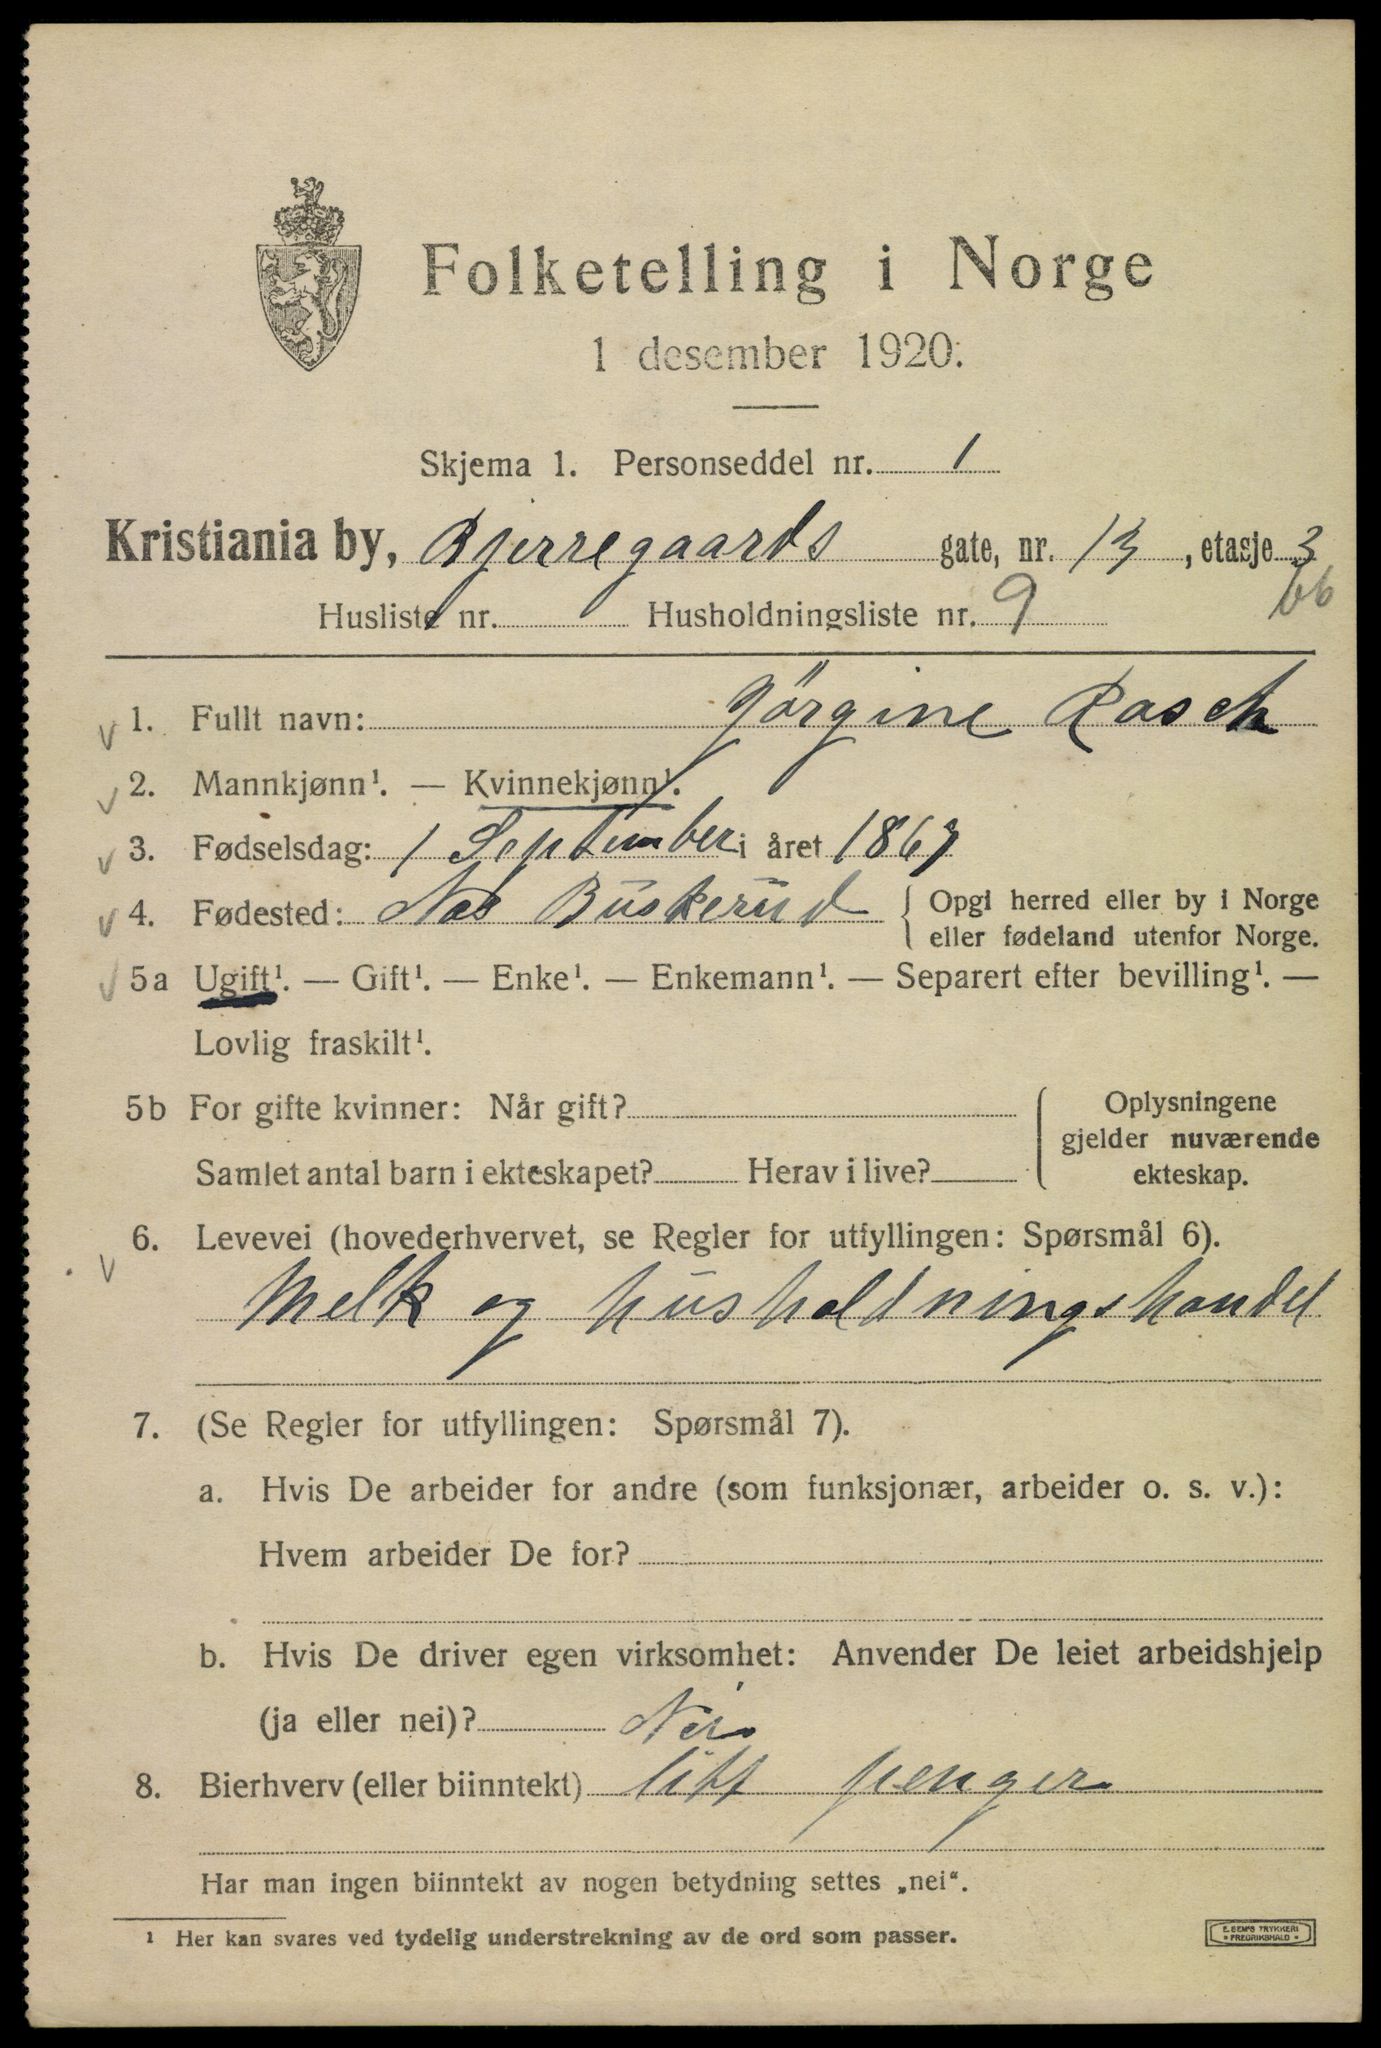 Folketelling i Norge
1 desember 1920.
Skjema 1. Personseddel nr. 1
Kristiania by, Bjerregaards gate, nr. 13, etasje 3
Husliste nr. Husholdningsliste nr. 9 bb
1. Fullt navn: Jörgine Rasch
2. Mannkjønn¹. — Kvinnekjønn¹.
3. Fødselsdag: 1 September i året 1867
4. Fødested: Nes Buskerud { Opgi herred eller by i Norge
eller fødeland utenfor Norge.
5a Ugift¹. — Gift¹. — Enke¹. — Enkemann¹. — Separert efter bevilling¹. —
Lovlig fraskilt¹.
5b For gifte kvinner: Når gift? { Oplysningene
gjelder nuværende
Samlet antal barn i ekteskapet? Herav i live? ekteskap.
6. Levevei (hovederhvervet, se Regler for utfyllingen: Spørsmål 6).
Melk og husholdningshandel
7. (Se Regler for utfyllingen: Spørsmål 7).
a. Hvis De arbeider for andre (som funksjonær, arbeider o. s. v.):
Hvem arbeider De for?
b. Hvis De driver egen virksomhet: Anvender De leiet arbeidshjelp
(ja eller nei)? Nei
8. Bierhverv (eller biinntekt) litt penger
Har man ingen biinntekt av nogen betydning settes „nei“.
¹ Her kan svares ved tydelig understrekning av de ord som passer.
E. SEM'S TRYKKERI
FREDRIKSHALD